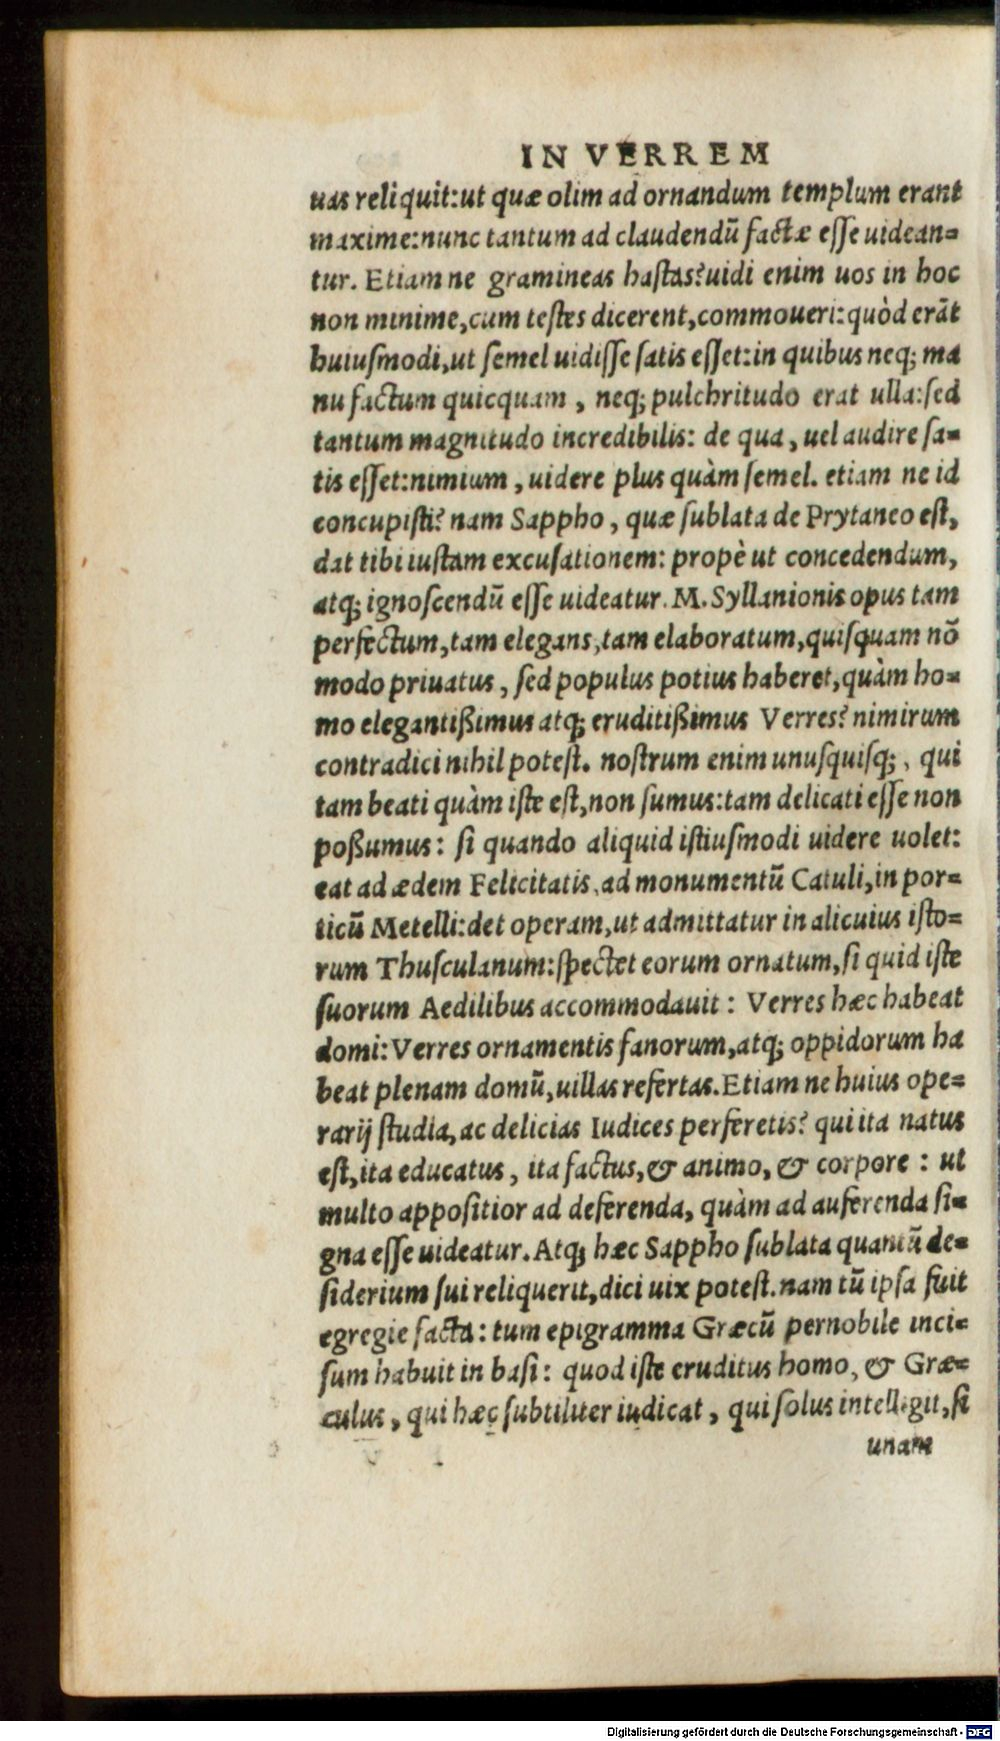 IN VERREM
uas reliquit:ut quæ olim ad ornandum templum erant
maxime:nunc tantum ad claudendũ factæ esse uidean=
tur. Etiam ne gramineas hastas?uidi enim uos in hoc
non minime,cum testes dicerent,commoueri:quòd erãt
huiusmodi,ut semel uidisse satis esset:in quibus neq; ma
nu factum quicquam , neq; pulchritudo erat ulla:sed
tantum magnitudo incredibilis: de qua , uel audire sa=
tis esset:nimium , uidere plus quàm semel. etiam ne id
concupisti? nam Sappho , quæ sublata de Prytaneo est,
dat tibi iustam excusationem: propè ut concedendum,
atq; ignoscendũ esse uideatur. M. Syllanionis opus tam
perfectum,tam elegans,tam elaboratum,quisquam nõ
modo priuatus , sed populus potius haberet,quàm ho=
mo elegantißimus atq; eruditißimus Verres? nimirum
contradici nihil potest. nostrum enim unusquisq; , qui
tam beati quàm iste est,non sumus:tam delicati esse non
poßumus: si quando aliquid istiusmodi uidere uolet:
eat ad ædem Felicitatis,ad monumentũ Catuli,in por=
ticũ Metelli:det operam,ut admittatur in alicuius isto=
rum Thusculanum:spectet eorum ornatum,si quid iste
suorum Aedilibus accommodauit : Verres hæc habeat
domi:Verres ornamentis fanorum,atq; oppidorum ha
beat plenam domũ,uillas refertas.Etiam ne huius ope=
rarij studia,ac delicias Iudices perferetis? qui ita natus
est,ita educatus , ita factus,& animo, & corpore : ut
multo appositior ad deferenda, quàm ad auferenda si=
gna esse uideatur.Atq; hæc Sappho sublata quantũ de=
siderium sui reliquerit,dici uix potest.nam tũ ipsa fuit
egregie facta: tum epigramma Græcũ pernobile inci=
sum habuit in basi: quod iste eruditus homo, & Græ=
culus , qui hæc subtiliter iudicat , qui solus intelligit,si
unam
Digitalisierung gefördert durch die Deutsche Forschungsgemeinschaft - DFG